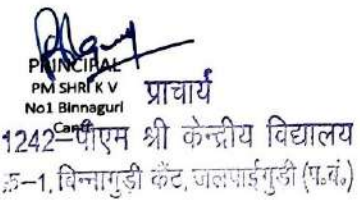 PRINCIPAL
PM SHRI K V
No1 Binnaguri
Cantt
प्राचार्य
1242–पीएम श्री केन्द्रीय विद्यालय
क्र–1, बिन्नागुड़ी कैंट, जलपाईगुड़ी (प.बं.)